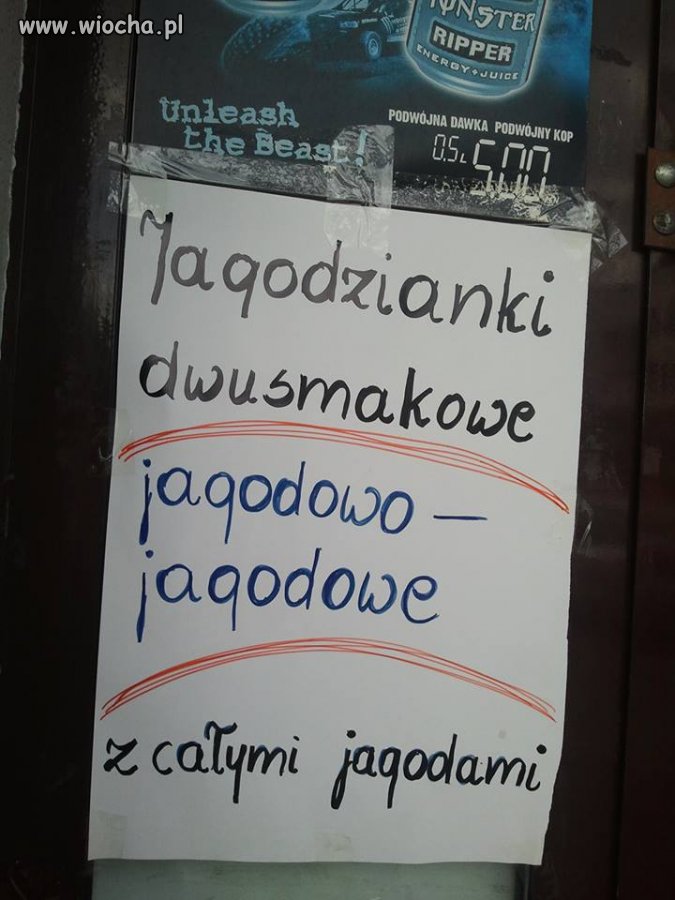 www.wiocha.pl
MONSTER
RIPPER
ENERGY+JUICE
Unleash
the Beast!
PODWÓJNA DAWKA PODWÓJNY KOP
0.5L 500
Jagodzianki
dwusmakowe
jagodowo –
jagodowe
z całymi jagodami